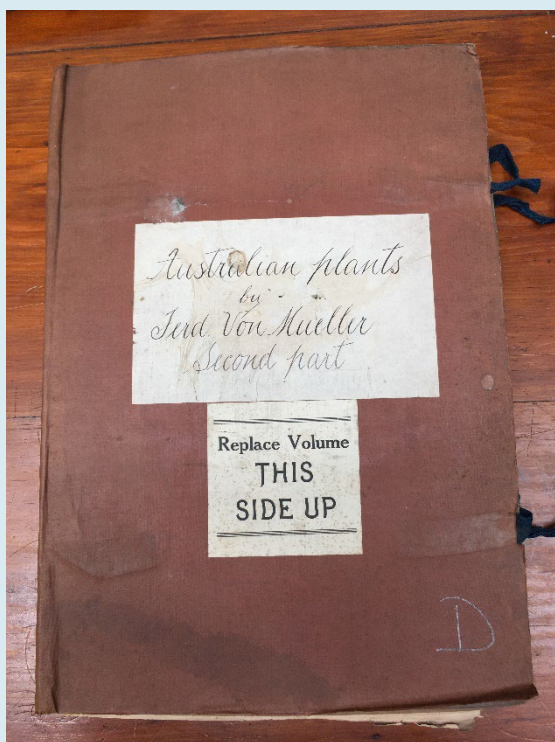 Australian plants
by
Ferd. Von Mueller
Second part
Replace Volume
THIS
SIDE UP
D